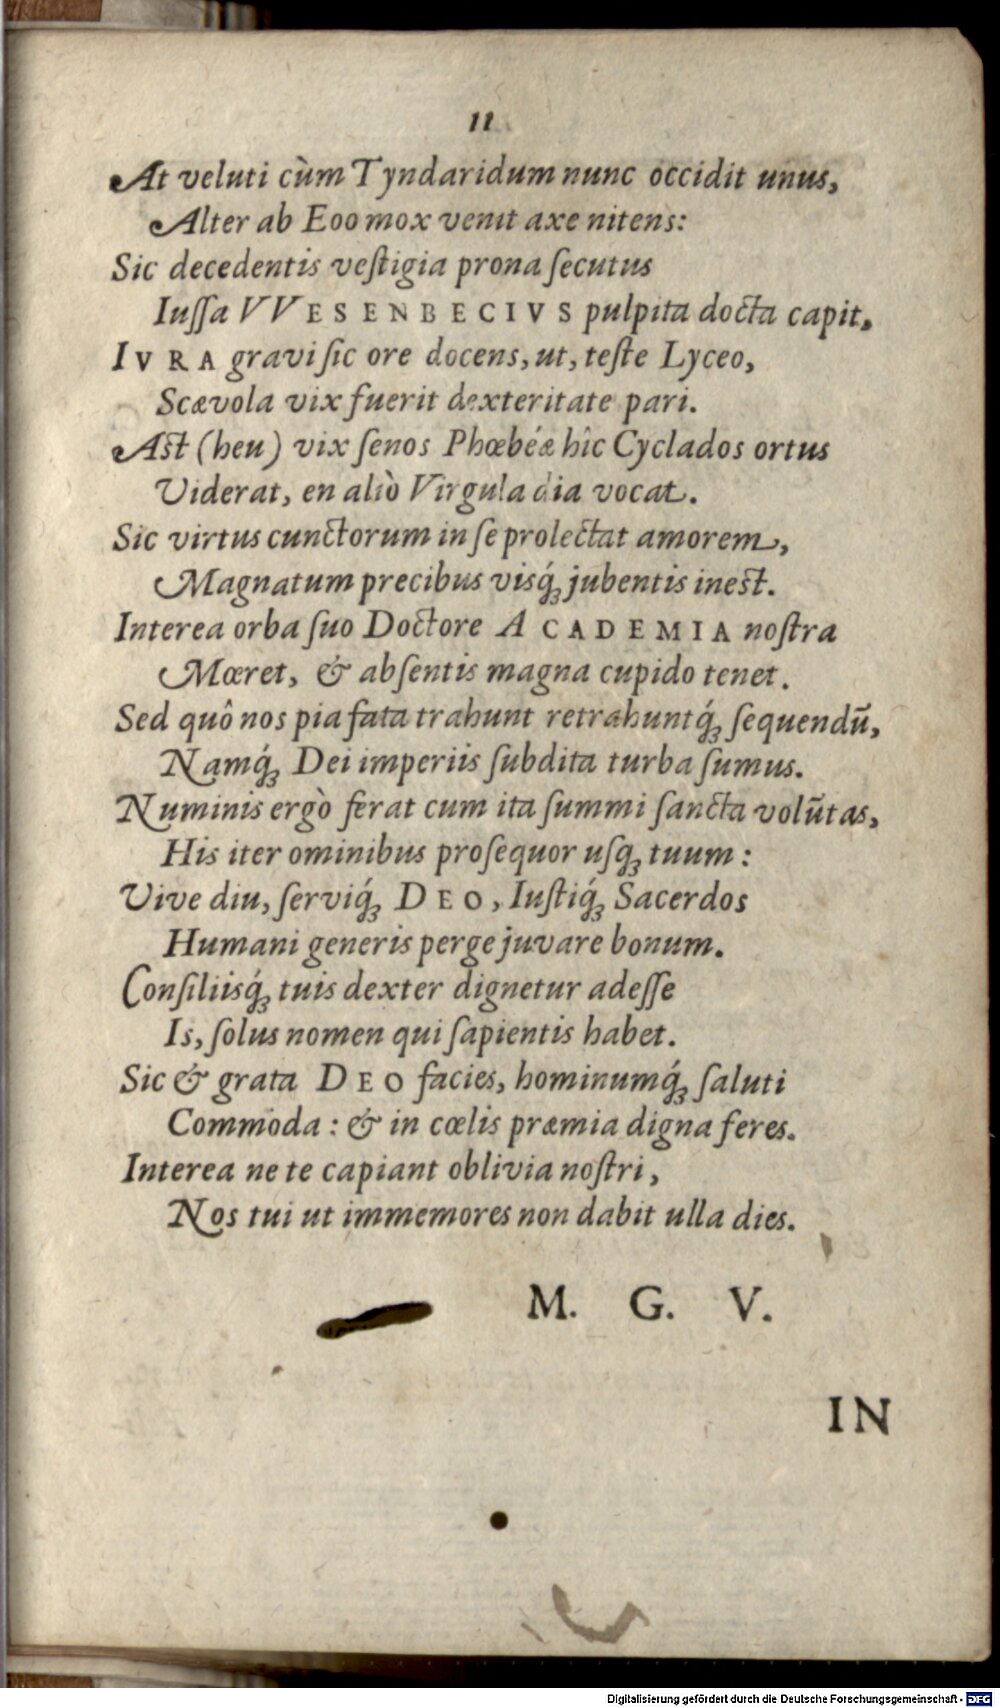 11
At veluti cùm Tyndaridum nunc occidit unus,
Alter ab Eoo mox venit axe nitens:
Sic decedentis veſtigia prona ſecutus
Iuſſa VVESENBECIVS pulpita docta capit,
IVRA gravi ſic ore docens, ut, teſte Lyceo,
Scævola vix fuerit dexteritate pari.
Aſt (heu) vix ſenos Phœbéæ hîc Cyclados ortus
Viderat, en aliò Virgula dia vocat.
Sic virtus cunctorum in ſe prolectat amorem,
Magnatum precibus visq́ꝫ jubentis ineſt.
Interea orba ſuo Doctore ACADEMIA noſtra
Mœret, & abſentis magna cupido tenet.
Sed quô nos pia fata trahunt retrahuntq́ꝫ ſequendũ,
Namq́ꝫ Dei imperiis ſubdita turba ſumus.
Numinis ergò ferat cum ita ſummi ſancta volũtas,
His iter ominibus proſequor uſqꝫ tuum:
Vive diu, ſerviq́ꝫ DEO, Iuſtiq́ꝫ Sacerdos
Humani generis perge juvare bonum.
Conſiliisq́ꝫ tuis dexter dignetur adeſſe
Is, ſolus nomen qui ſapientis habet.
Sic & grata DEO facies, hominumq́ꝫ ſaluti
Commoda: & in cœlis præmia digna feres.
Interea ne te capiant oblivia noſtri,
Nos tui ut immemores non dabit ulla dies.
M. G. V.
IN
Digitalisierung gefördert durch die Deutsche Forschungsgemeinschaft - DFG